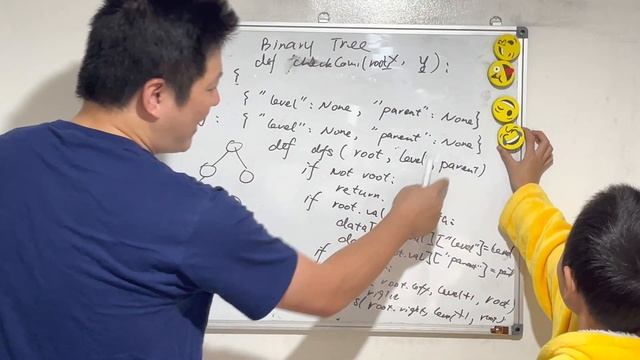 Binary Tree
def checkCousi(root, x, y):
{
{ "level": None, "parent": None}
: { "level": None, "parent": None}
def dfs( root, level, parent)
if not root:
return.
if root.val
data[ ]["level"]=level
.val]["parent"]=
if
root.left, level+1, root)
root.right, level+1, root,